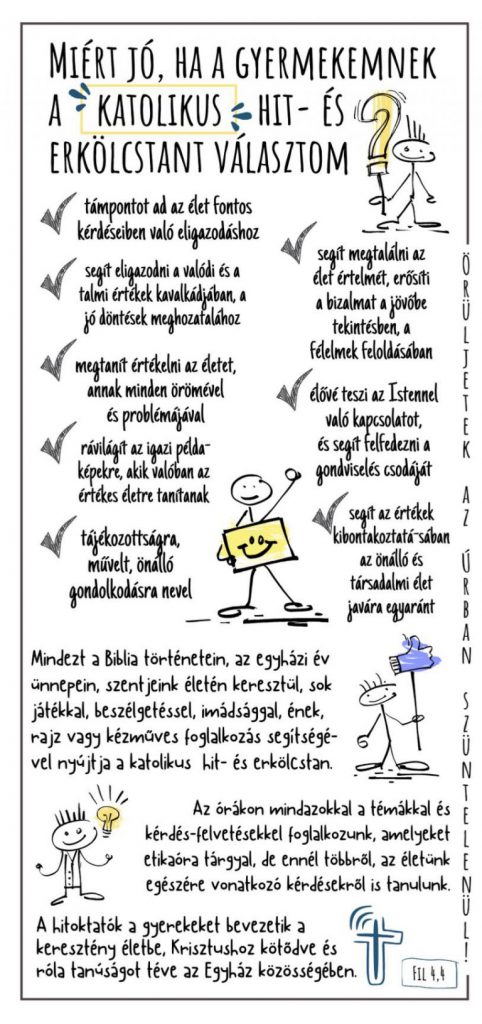 MIÉRT JÓ, HA A GYERMEKEMNEK
A KATOLIKUS HIT- ÉS
ERKÖLCSTANT VÁLASZTOM
?
támpontot ad az élet fontos
kérdéseiben való eligazodáshoz
segít eligazodni a valódi és a
talmi értékek kavalkádjában, a
jó döntések meghozatalához
megtanít értékelni az életet,
annak minden örömével
és problémájával
rávilágít az igazi példa-
képekre, akik valóban az
értékes életre tanítanak
tájékozottságra,
művelt, önálló
gondolkodásra nevel
segít megtalálni az
élet értelmét, erősíti
a bizalmat a jövőbe
tekintésben, a
félelmek feloldásában
élővé teszi az Istennel
való kapcsolatot,
és segít felfedezni a
gondviselés csodáját
segít az értékek
kibontakoztatá-sában
az önálló és
társadalmi élet
javára egyaránt
ÖRÜLJETEK AZ ÚRBAN SZÜNTELENÜL!
Mindezt a Biblia történetein, az egyházi év
ünnepein, szentjeink életén keresztül, sok
játékkal, beszélgetéssel, imádsággal, ének,
rajz vagy kézműves foglalkozás segítségé-
vel nyújtja a katolikus hit- és erkölcstan.
Az órákon mindazokkal a témákkal és
kérdés-felvetésekkel foglalkozunk, amelyeket
etikaóra tárgyal, de ennél többről, az életünk
egészére vonatkozó kérdésekről is tanulunk.
A hitoktatók a gyerekeket bevezetik a
keresztény életbe, Krisztushoz kötődve és
róla tanúságot téve az Egyház közösségében.
FIL 4,4